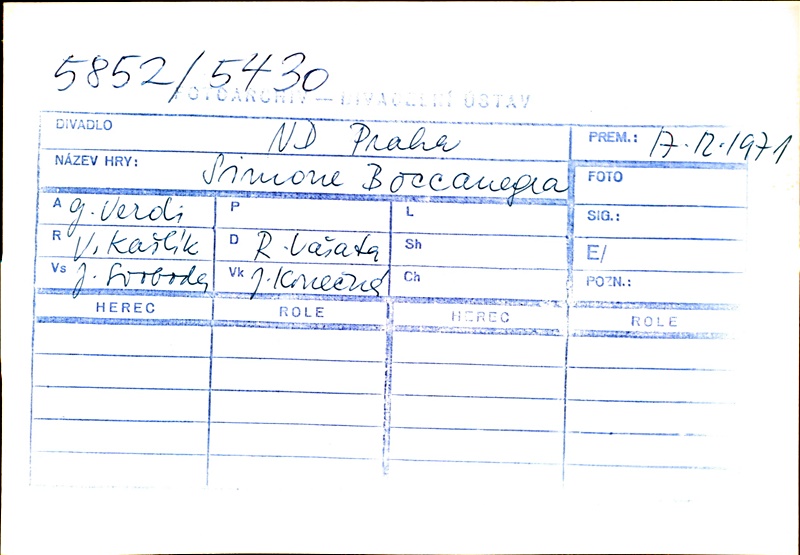 5852/5430
FOTOARCHIV — DIVADELNÍ ÚSTAV
DIVADLO ND Praha PREM.: 17.12.1971
NÁZEV HRY: Simone Boccanegra FOTO
A G. Verdi P L SIG.:
R V. Kašlík D R. Vašata Sh E/
Vs J. Svoboda Vk J. Konečná Ch POZN.:
HEREC ROLE HEREC ROLE